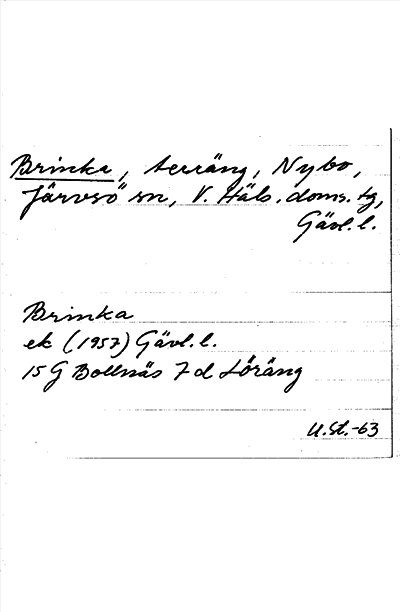 Brinka, terräng, Nybo,
Järvsö sn, V. Häls. doms. tg,
Gävl. l.
Brinka
ek (1957) Gävl. l.
15 G Bollnäs 7 d Löräng
U.St.-63